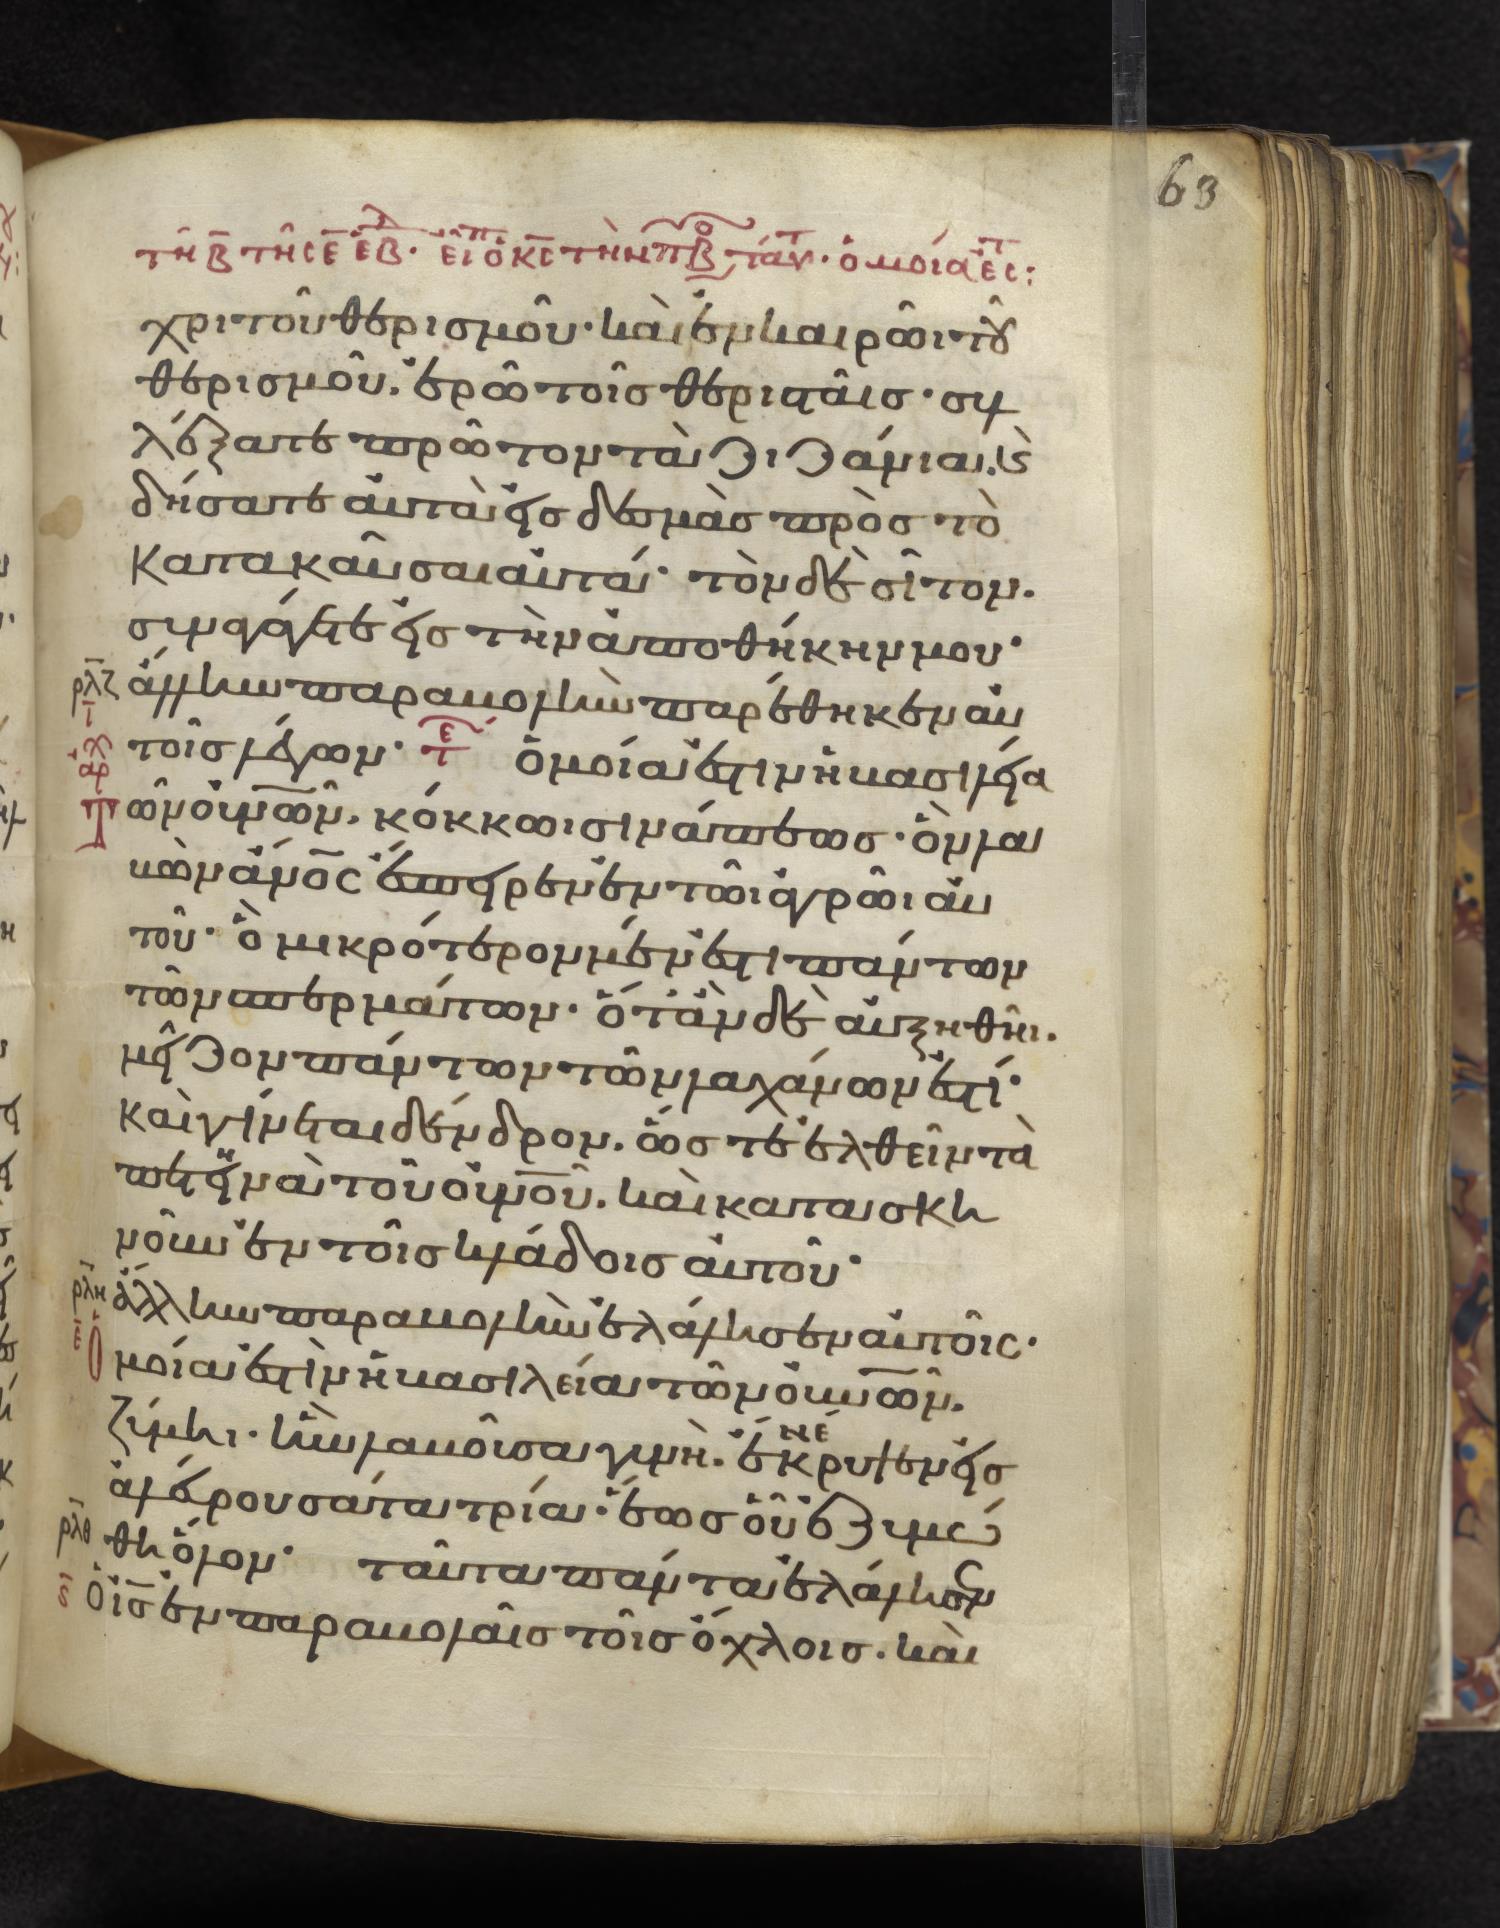 63
τῆ β̅ τῆς ε̅ ἑβ. εἶπ ὁ κ̅ς̅ τὴν πβ ταύτ. ὁμοία ἐς:
χρι τοῦ θερισμοῦ· καὶ ἐν καιρῶι τοῦ
θερισμοῦ. ἐρῶ τοῖς θερισταῖς· συλ
λέξατε πρῶτον τὰ ζιζάνια. κὲ
δήσατε αὐτὰ εἰς δεσμὰς πρὸς τὸ
κατακαῦσαι αὐτά· τὸν δὲ σῖτον.
συναγάγετε εἰς τὴν ἀποθήκην μου·
ρλζ ἄλλην παραβολὴν παρέθηκεν αὐ
τοῖς λέγων· τε ὁμοία ἐστὶν ἡ βασιλεία
τῶν οὐν̅ῶν̅. κόκκωι σινάπεως· ὃν λα
βὼν ἄν̅ο̅ς̅ ἔσπειρεν ἐν τῶι ἀγρῶι αὐ
τοῦ· ὃ μικρότερον μέν ἐστι πάντων
τῶν σπερμάτων· ὅταν δὲ αὐξηθῆι.
μεῖζον πάντων τῶν λαχάνων ἐστί·
καὶ γίνεται δένδρον. ὥστε ἐλθεῖν τὰ
πετηεινὰ τοῦ οὐν̅οῦ̅. καὶ κατασκη
νοῦν ἐν τοῖς κλάδοις αὐτοῦ·
ρλη ἄλλην παραβολὴν ἐλάλησεν αὐτοῖς·
Ὁμοία ἐστὶν ἡ βασιλεία τῶν οὐν̅ῶν̅.
ζύμηι· ἣν λαβοῦσα γυνὴ. ἐνέκρυψεν εἰς
ἀλεύρου σάτα τρία· ἕως οὗ ἐζυμώ
ρλθ θη ὅλον· ταῦτα πάντα ἐλάλησεν
ς ὁ ἰ̅ς̅ ἐν παραβολαῖς τοῖς ὄχλοις. καὶ